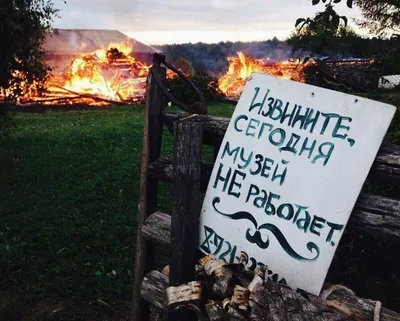 Извините,
сегодня
музей
НЕ работает.